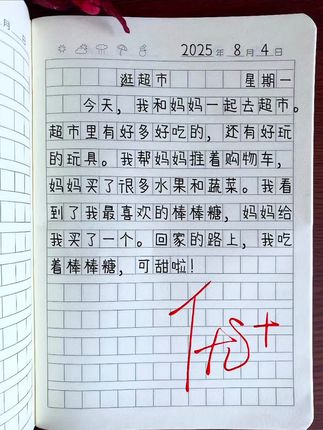 2025年8月4日
逛超市 星期一
今天，我和妈妈一起去超市。
超市里有好多好吃的，还有好玩
的玩具。我帮妈妈推着购物车，
妈妈买了很多水果和蔬菜。我看
到了我最喜欢的棒棒糖，妈妈给
我买了一个。回家的路上，我吃
着棒棒糖，可甜啦！